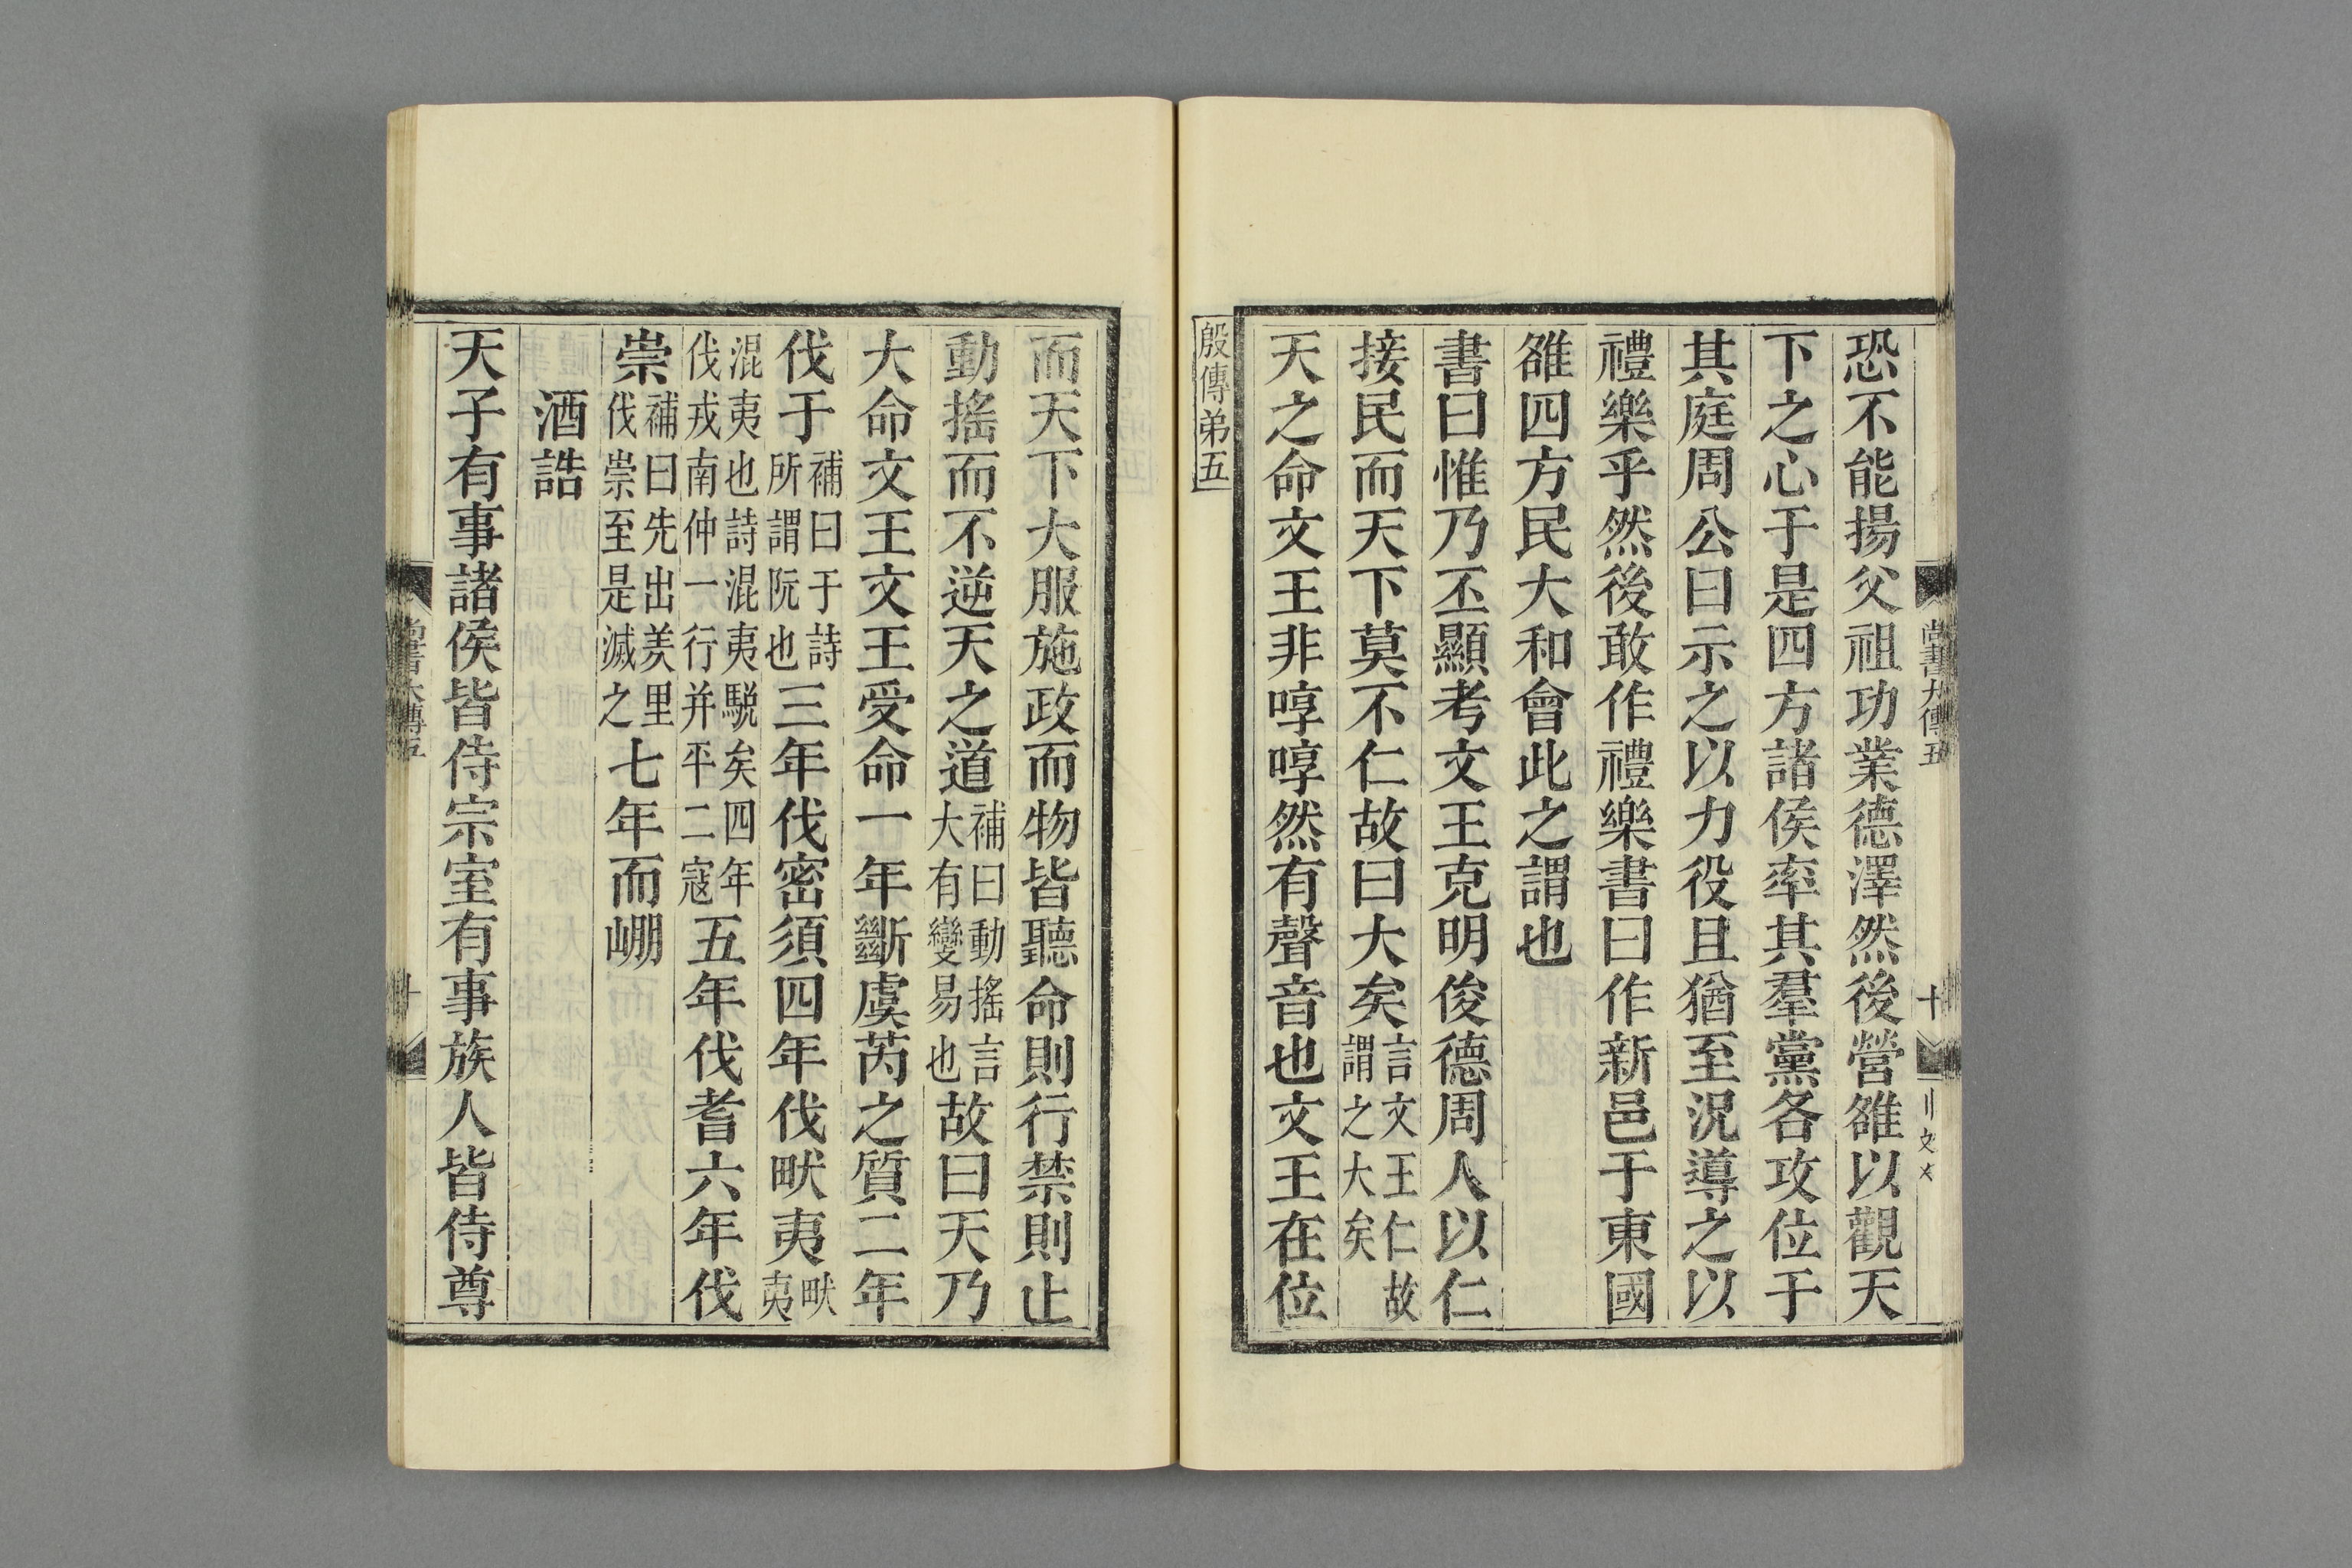 恐不能揚父祖功業德澤然後營雒以觀天
下之心于是四方諸侯率其羣黨各攻位于
其庭周公曰示之以力役且猶至況導之以
禮樂乎然後敢作禮樂書曰作新邑于東國
雒四方民大和會此之謂也
書曰惟乃丕顯考文王克明俊德周人以仁
接民而天下莫不仁故曰大矣言文王仁故謂之大矣
天之命文王非啍啍然有聲音也文王在位
殷傳弟五
而天下大服施政而物皆聽命則行禁則止
動搖而不逆天之道補曰動搖言大有變易也故曰天乃
大命文王文王受命一年斷虞芮之質二年
伐于補曰于詩所謂阮也三年伐密須四年伐畎夷畎夷
混夷也詩混夷駾矣四年伐戎南仲一行并平二寇五年伐耆六年伐
崇補曰先出羑里伐崇至是滅之七年而崩
酒誥
天子有事諸侯皆侍宗室有事族人皆侍尊